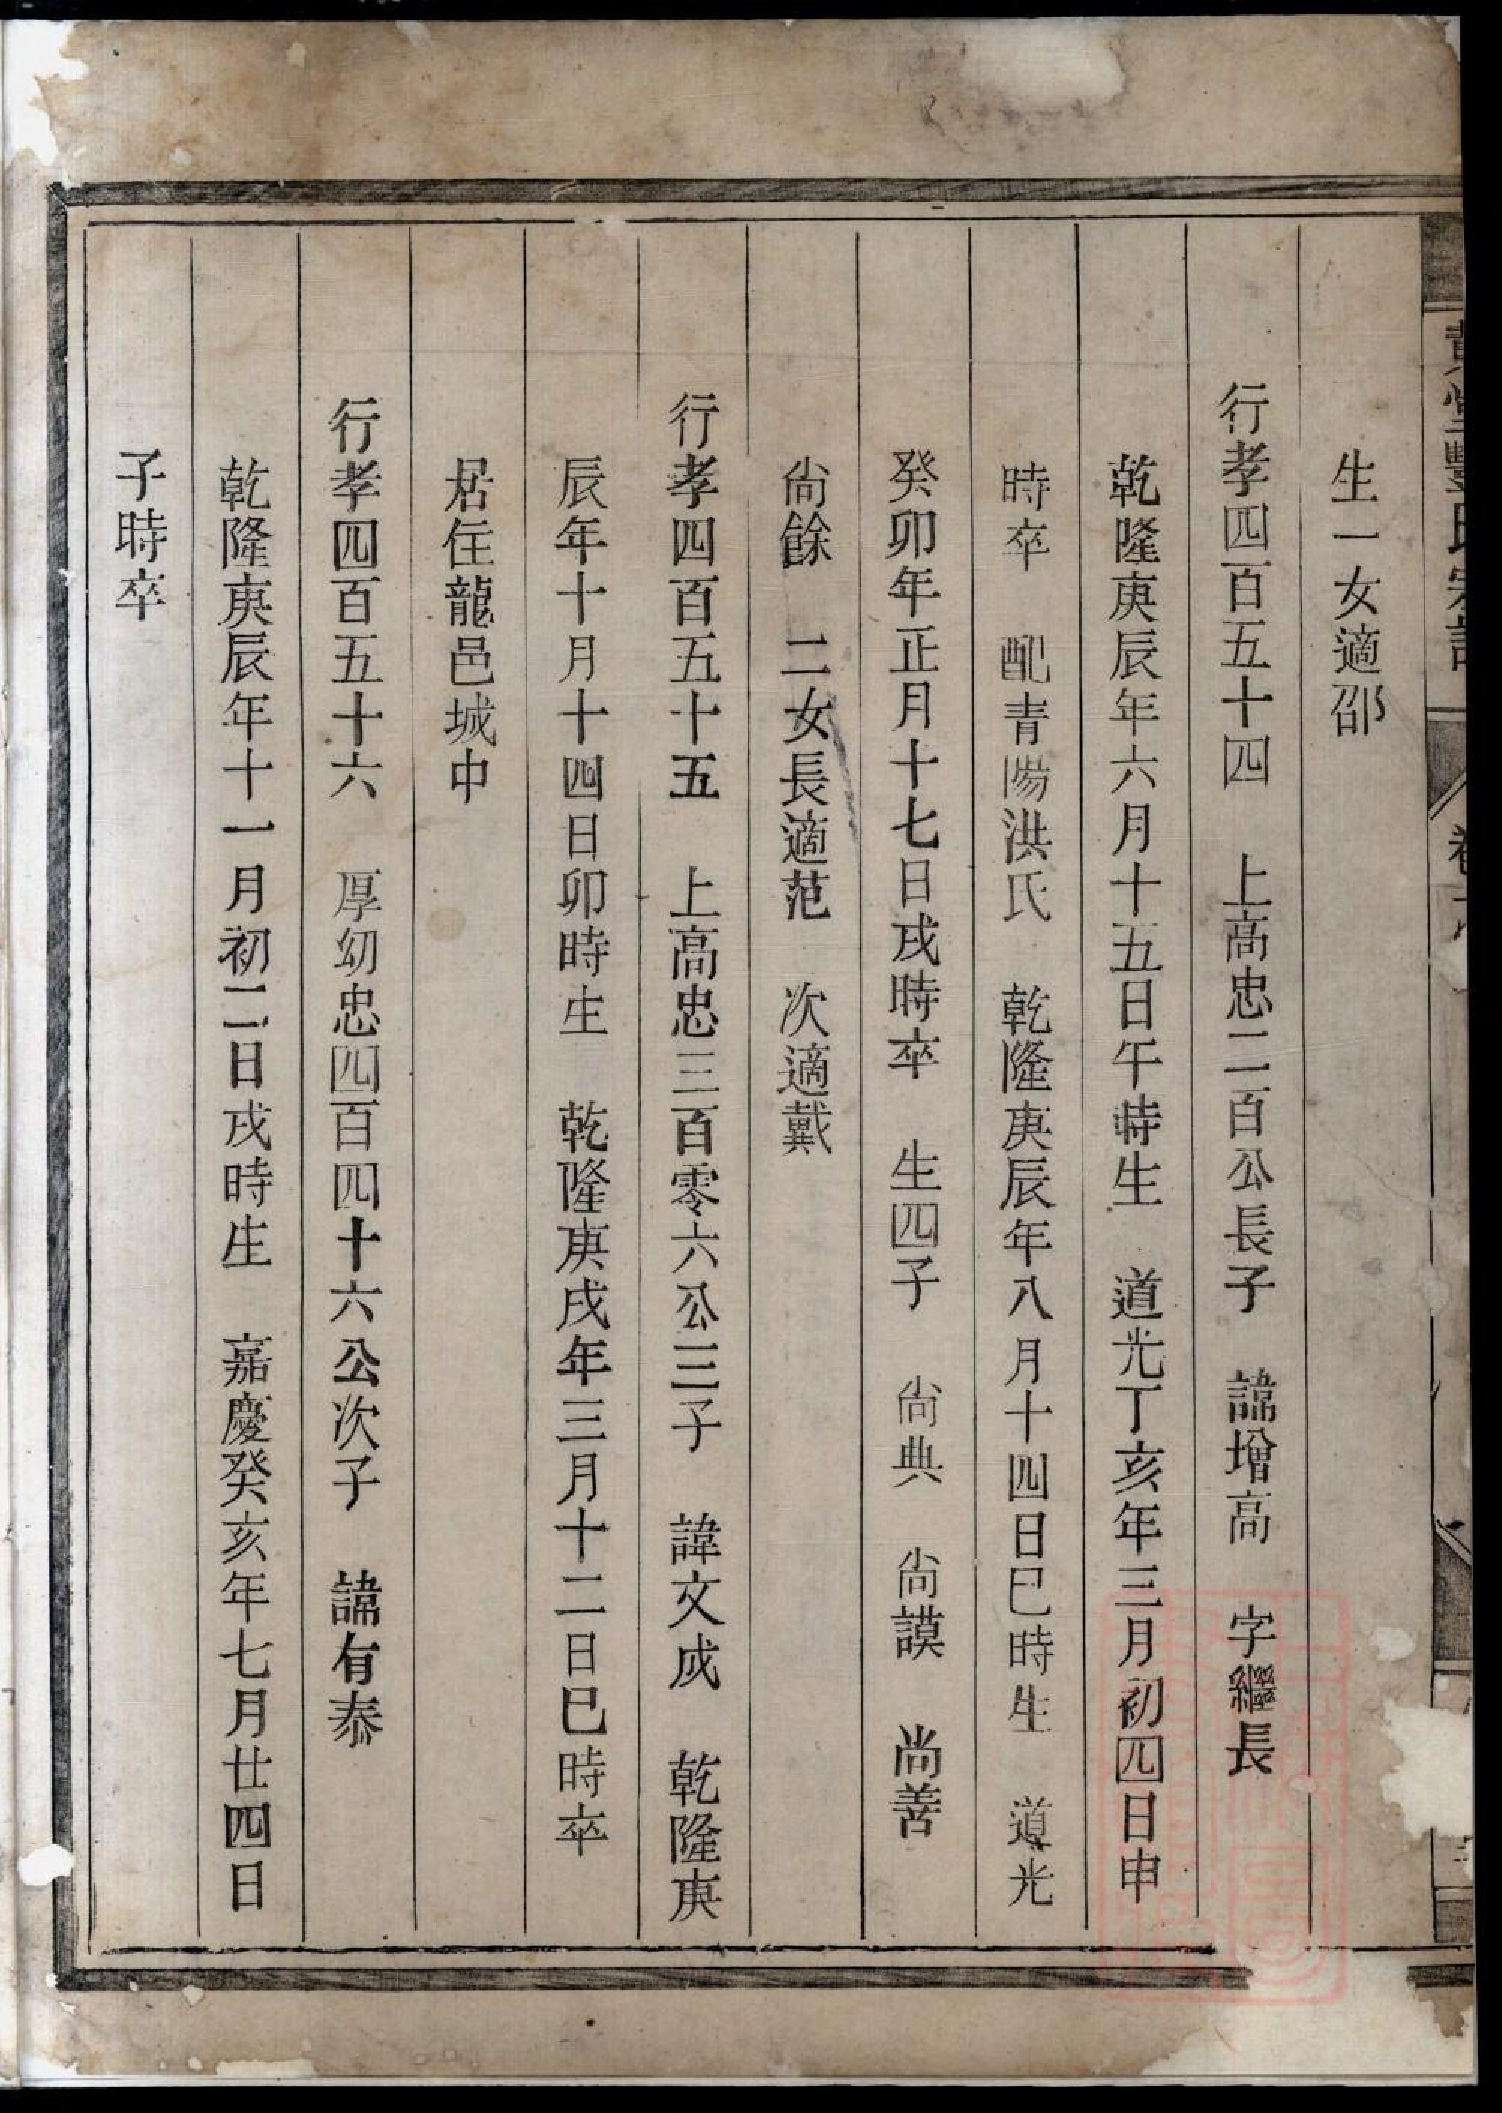 生一女適邵
行孝四百五十四　上高忠二百公長子　諱增高　字繼長
乾隆庚辰年六月十五日午時生　道光丁亥年三月初四日申
時卒　配青陽洪氏　乾隆庚辰年八月十四日巳時生　道光
癸卯年正月十七日戌時卒　生四子　尙典　尙謨　尚善
尙餘　二女長適范　次適戴
行孝四百五十五　上高忠三百零六公三子　諱文成　乾隆庚
辰年十月十四日卯時生　乾隆庚戌年三月十二日巳時卒
居住龍邑城中
行孝四百五十六　厚幼忠四百四十六公次子　諱有泰
乾隆庚辰年十一月初二日戌時生　嘉慶癸亥年七月廿四日
子時卒